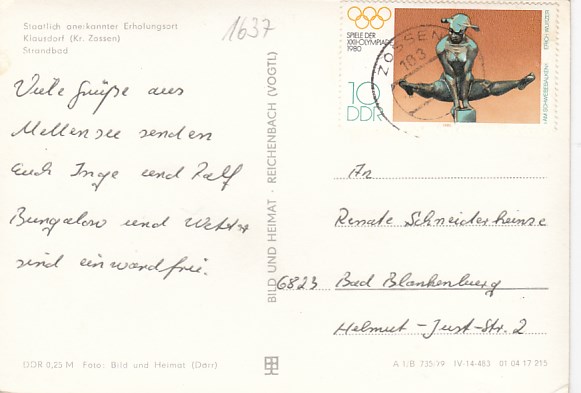 Staatlich anerkannter Erholungsort
Klausdorf (Kr. Zossen)
Strandbad
1637
Viele Grüße aus
Mellensee senden
Euch Inge und Ralf
Bungalow und Wetter
sind einwandfrei.
BILD UND HEIMAT · REICHENBACH (VOGTL)
SPIELE DER
XXII. OLYMPIADE
1980
10
DDR
„AM SCHWEBEBALKEN“ ERICH WURZER
ZOSSEN
183
An
Renate Schneiderheinze
6823 Bad Blankenburg
Helmut-Just-Str. 2
DDR 0,25 M Foto: Bild und Heimat (Darr)
A 1/B 735/79 IV-14-483 01 04 17 215